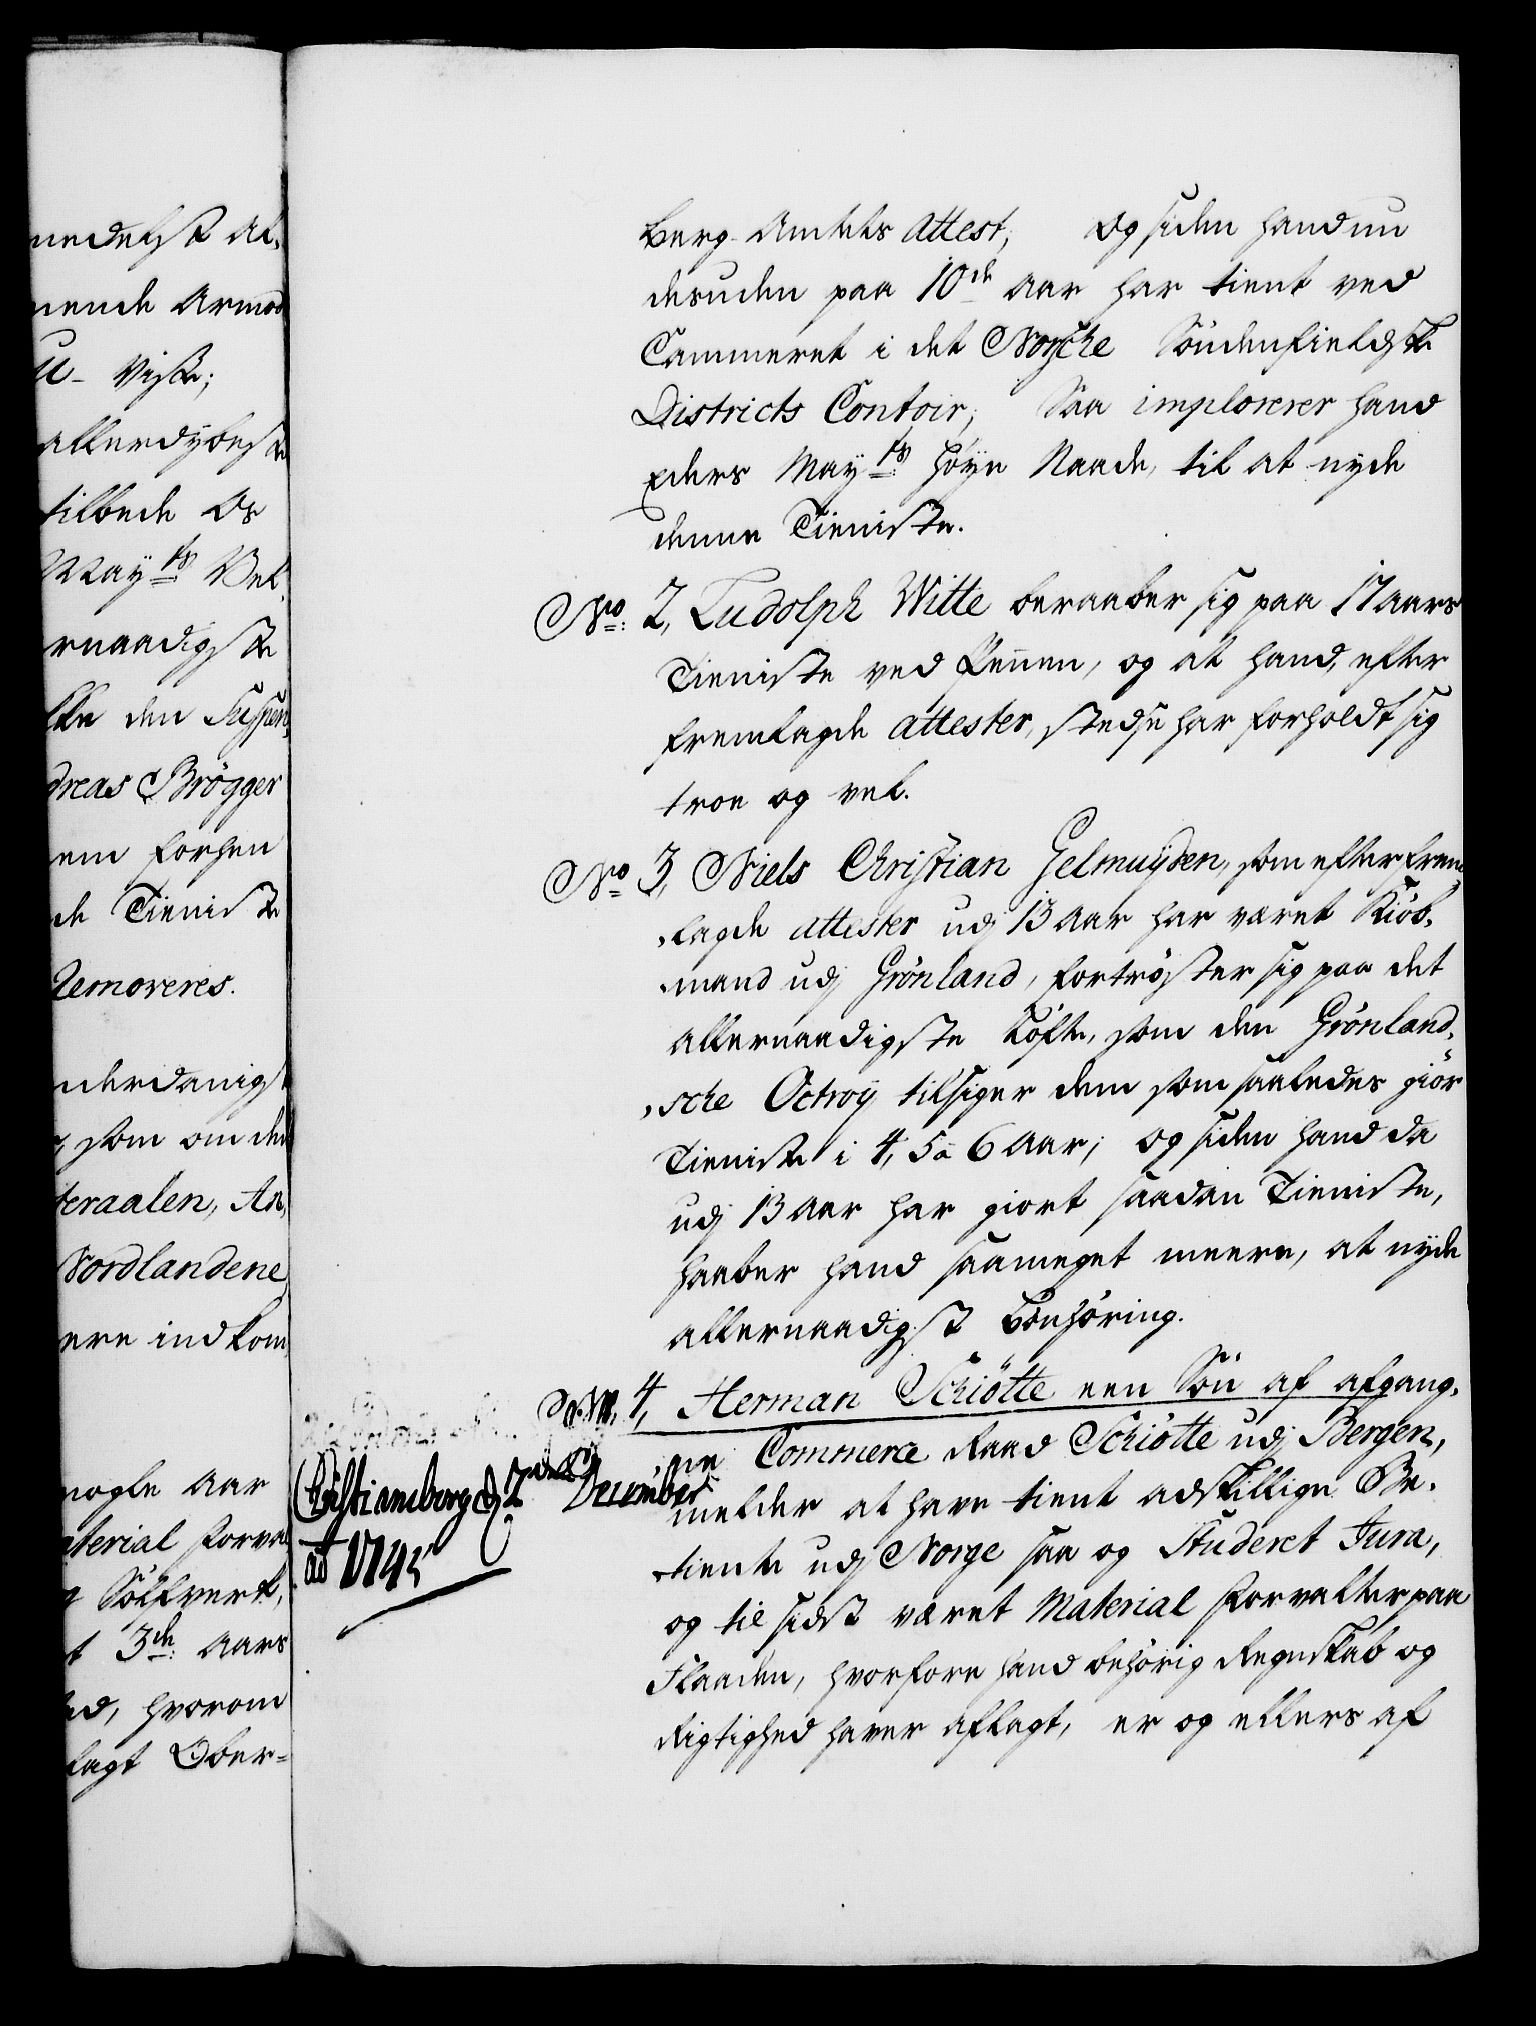 nedelst al,
nende Armod
U- Viste;
allerdybeste
tilbede Os
May:ts Vel,
rnaadigste
lke den Suspen,
dreas Brögger
em forhen
de Tieniste
Removeres.
nderdanigst
, som om den
teraalen, An,
Nordlandene
ere indkom,
nogle Aar
aterial forva
g Sölfverk,
t 3de: Aars
ed, hvorom
lagt Ober=
berg-Amtets Attest; Og siden hand nu
desuden paa 10de Aar har tient ved
Cammeret i det Norsche Söndenfieldske
Districts Contoir; Saa implorerer hand
Eders May:ts höye Naade, til at nyde
denne Tieniste.
No: 2, Ludolph Witte beraaber sig paa 17 Aars
Tieniste ved Lennen, og at hand, efter
fremlagde attester, stedse har forholdt sig
troe og vel.
No 3, Niels Christian Gelmuyden, som efter frem
,lagde attester udj 13 Aar har været Kiöb,
,mand udj Grönland, fortröster sig paa det
allernaadigste Löfte, som den Grönland,
,sche Octroy tilsiger dem som saaledes giör
Tieniste i 4, 5 à 6 Aar; og siden hand da
udj 13 Aar har giort saadan Tieniste,
haaber hand saameget meere, at nyde
allernaadigst bönhöring.
No. 4, Herman Schiötte een Sön af afgang,
,ne Commerce Raad Schiötte udj Bergen,
melder at have tient adskillige Be,
,tiente udj Norge saa og Studeret Jura,
og til sidst været Material forvalter paa
Flaaden, hvorfore hand behörig Regnskab og
Rigtighed haver aflagt, er og ellers af
Christiansborg d. 2 December
aõ 1745